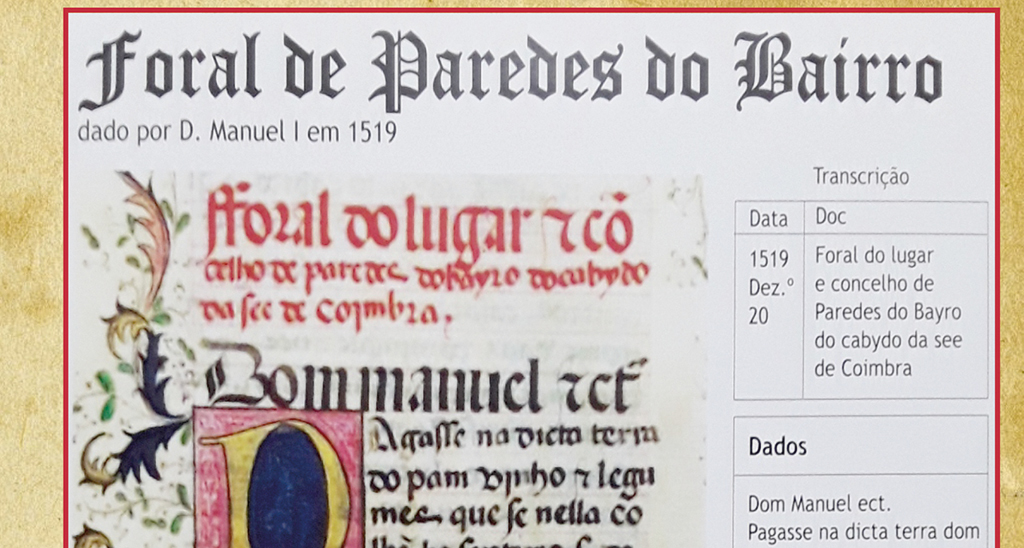 Foral de Paredes do Bairro
dado por D. Manuel I em 1519
fforal do lugar ⁊ cõ
celho de paredes do bayro do cabydo
da see de Coimbra.
Dom manuel ⁊ct̃
Agasse na dicta terra
do pam vinho ⁊ legu
mes que se nella co
Transcrição
Data Doc
1519 Foral do lugar
Dez.º e concelho de
20 Paredes do Bayro
do cabydo da see
de Coimbra
Dados
Dom Manuel ect.
Pagasse na dicta terra dom